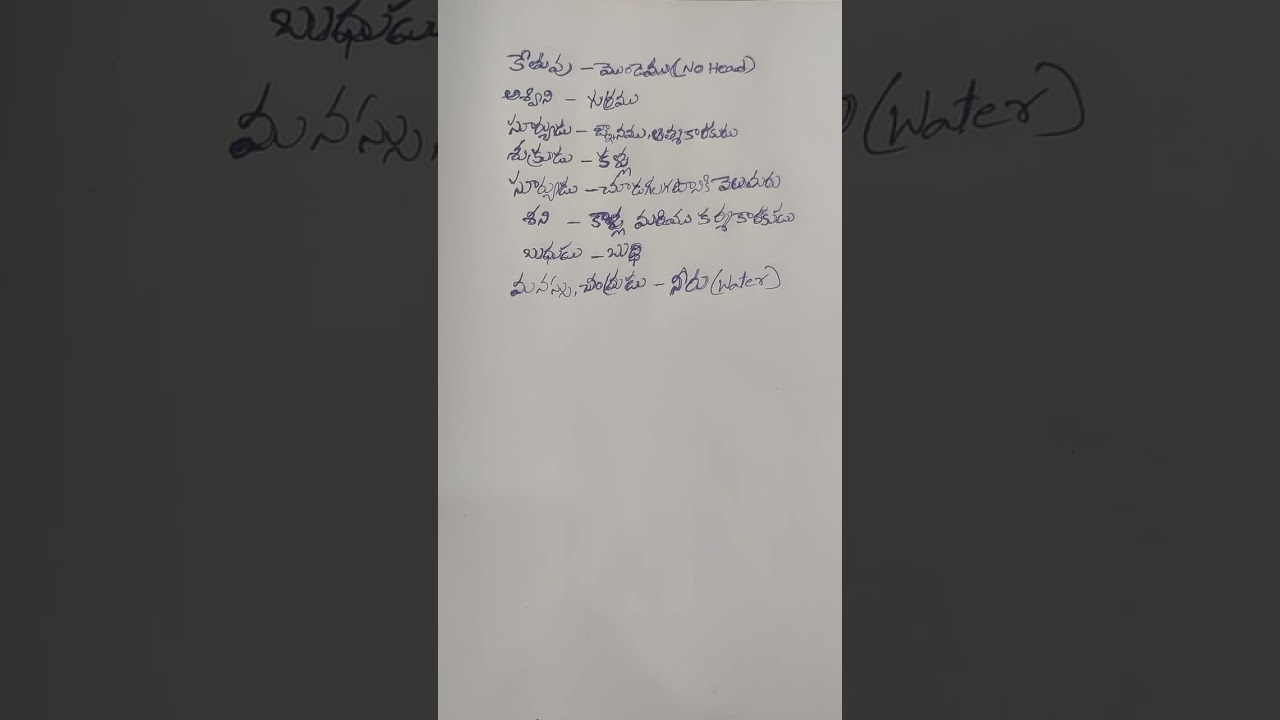 కేతువు - మొండెము (No Head)
అశ్విని - గుర్రము
సూర్యుడు - జ్ఞానము, ఆత్మకారకుడు
శుక్రుడు - కళ్లు
సూర్యుడు - చూడగలగటానికి వెలుతురు
శని - కాళ్లు మరియు కర్మకారకుడు
బుధుడు - బుద్ధి
మనస్సు, చంద్రుడు - నీరు (Water)